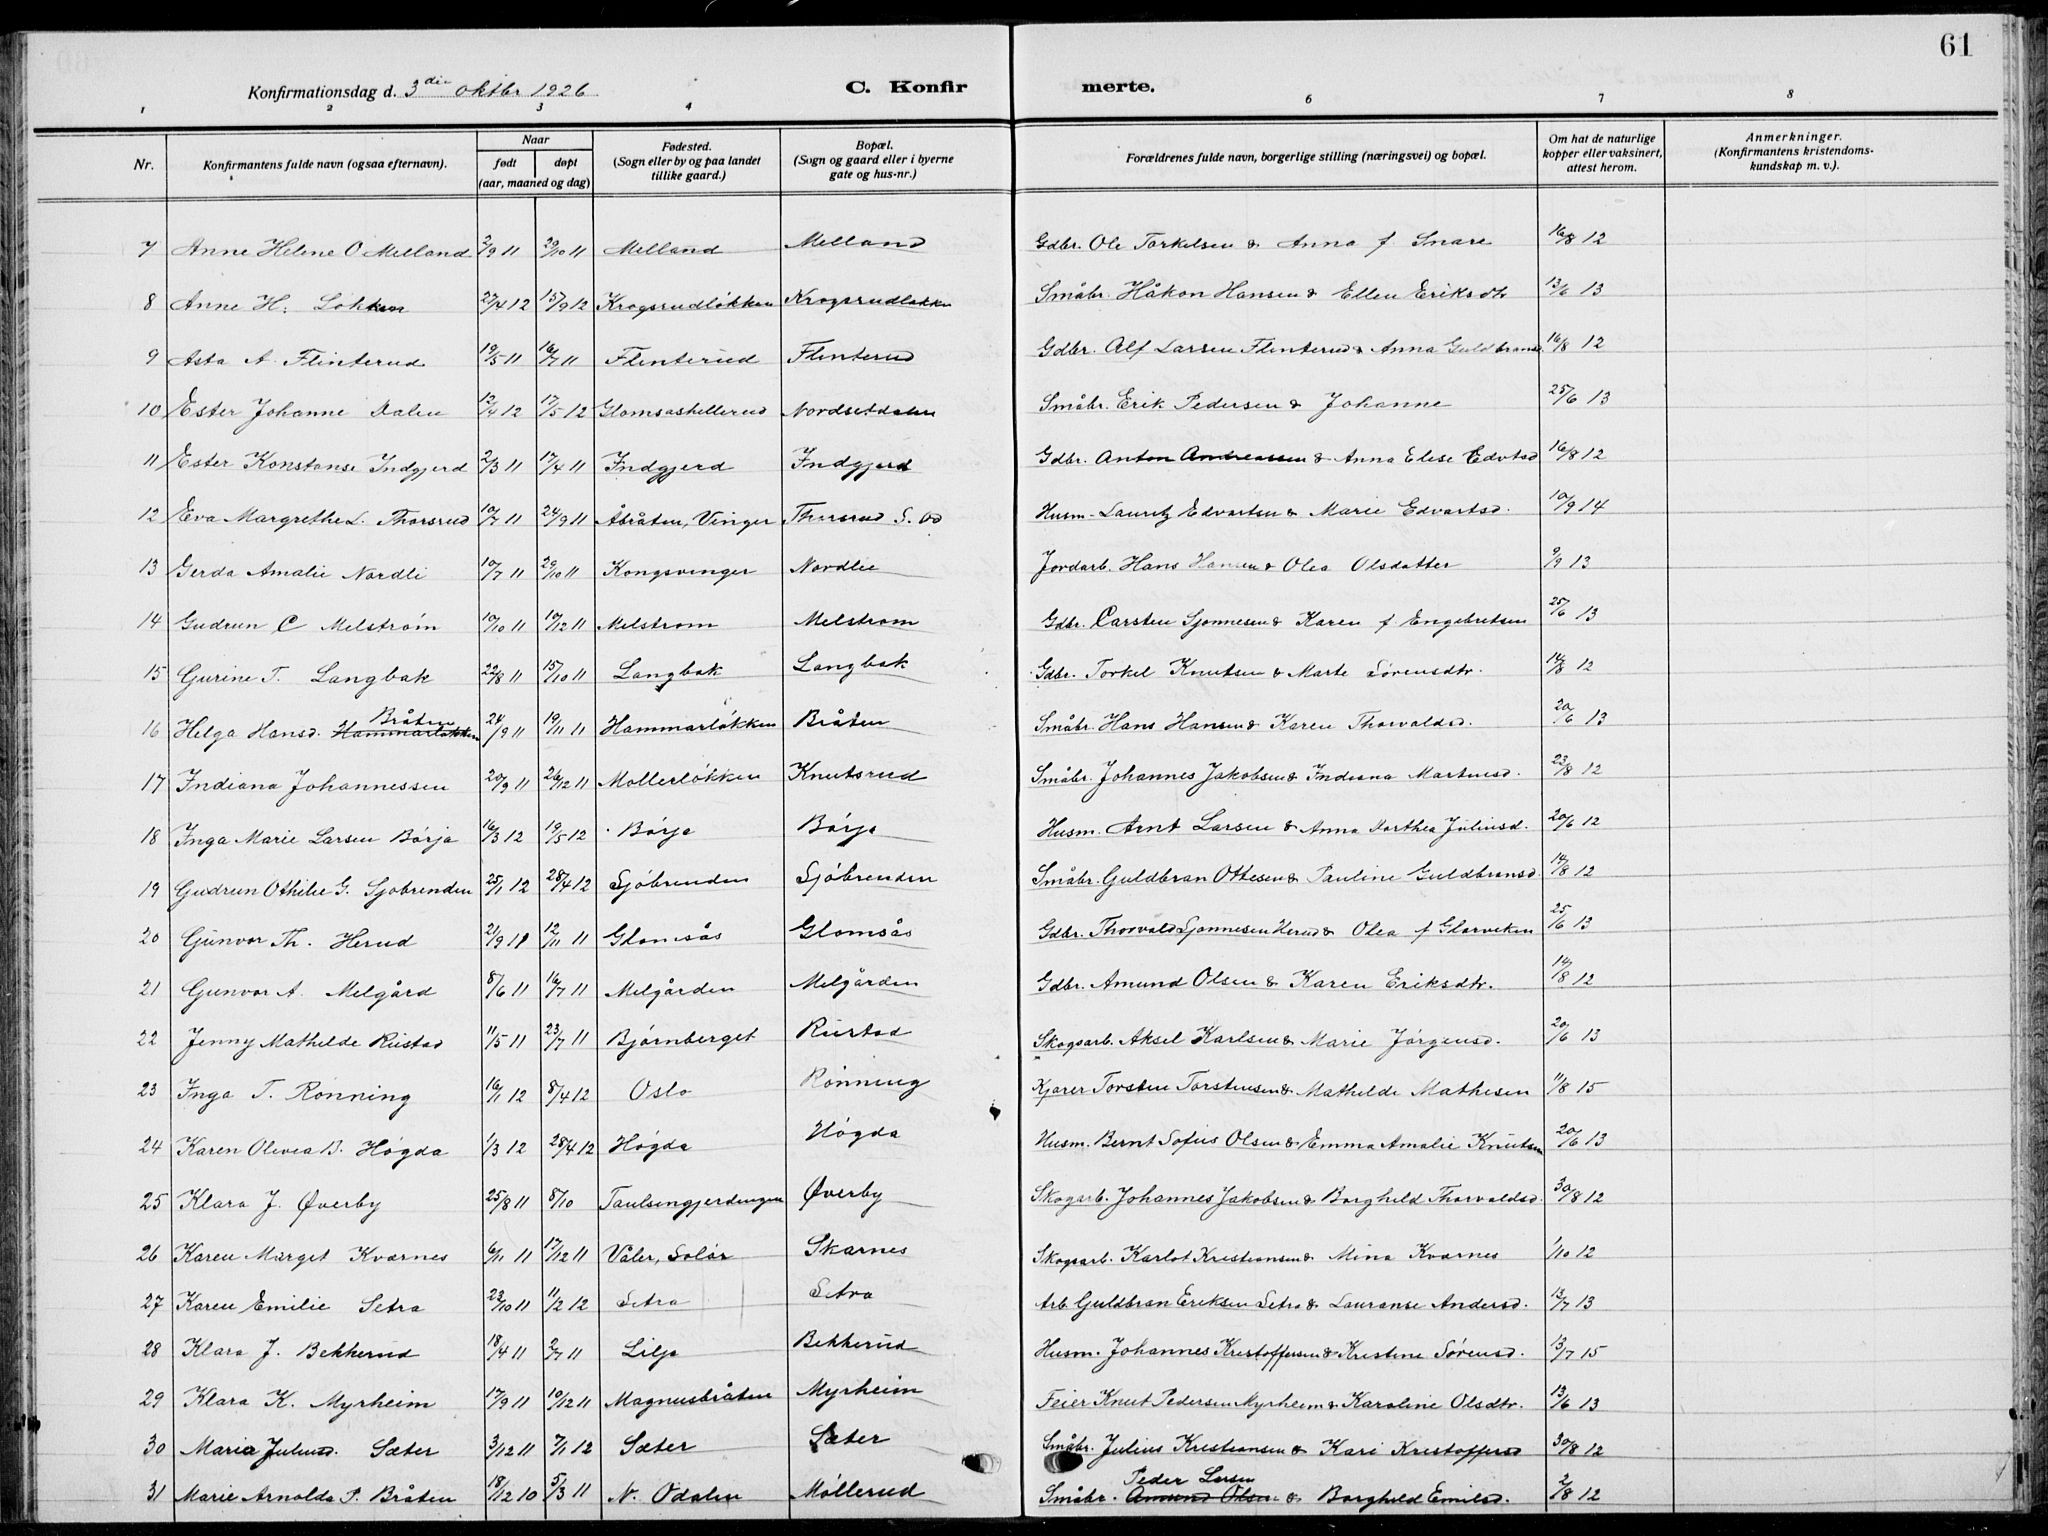 61
Konfirmationsdag d. 3die oktbr 1926 C. Konfir merte.
1 2 3 4 6 7 8
Nr. Konfirmantens fulde navn (ogsaa efternavn). Naar født døpt (aar, maaned og dag) Fødested. (Sogn eller by og paa landet tillike gaard.) Bopæl. (Sogn og gaard eller i byerne gate og hus-nr.) Forældrenes fulde navn, borgerlige stilling (næringsvei) og bopæl. Om hat de naturlige kopper eller vaksinert, attest herom. Anmerkninger. (Konfirmantens kristendoms-kundskap m. v.).
7 Anne Helene O Melland 2/9 11 29/10 11 Melland Melland Gdbr. Ole Torkelsen & Anna f Snare 16/8 12
8 Anne H. Løkken 27/4 12 15/9 12 Krogsrudløkken Krogsrudløkken Småbr. Håkon Hansen & Ellen Eriksdtr 13/6 13
9 Asta A. Flinterud 19/5 11 16/7 11 Flinterud Flinterud Gdbr. Alf Larsen Flinterud & Anna Guldbransd. 16/8 12
10 Ester Johanne Dalen 12/4 12 17/5 12 Glomsåshellerud Nordsetdalen Småbr. Erik Pedersen & Johanne 25/6 13
11 Ester Konstanse Indgjerd 2/3 11 17/4 11 Indgjerd Indgjerd Gdbr. Anton Andreassen & Anna Elise Edvtsd 16/8 12
12 Eva Margrethe L. Thorsrud 10/7 11 24/9 11 Åbråten, Vinger Thorsrud S. Od Husm. Lauritz Edvartsen & Marie Edvartsd. 10/9 14
13 Gerda Amalie Nordli 10/7 11 29/10 11 Kongsvinger Nordlie Jordarb. Hans Hansen & Olea Olsdatter 9/9 13
14 Gudrun C Melstrøm 10/10 11 10/12 11 Melstrøm Melstrøm Gdbr. Carsten Sjønnesen & Karen f Engebretsen 25/6 13
15 Gurine T. Langbak 22/8 11 15/10 11 Langbak Langbak Gdbr. Torkel Knutsen & Marte Sørensdtr. 14/8 12
16 Helga Hansd. Hammarløkken Bråten 24/9 11 19/11 11 Hammarløkken Bråten Småbr. Hans Hansen & Karen Thorvaldsd. 20/6 13
17 Indiana Johannessen 20/9 11 26/12 11 Møllerløkken Knutsrud Småbr. Johannes Jakobsen & Indiana Martinsd. 23/8 12
18 Inga Marie Larsen Børja 16/3 12 19/5 12 Børja Børja Husm. Arnt Larsen & Anna Dorthea Juliusd. 20/6 12
19 Gudrun Othilie G. Sjøbrenden 25/1 12 28/4 12 Sjøbrenden Sjøbrenden Småbr. Guldbran Ottesen & Pauline Guldbransd. 14/8 12
20 Gunvor Th. Herud 21/9 11 12/11 11 Glomsås Glomsås Gdbr. Thorvald Sjønnesen Herud & Olea f Glorviken 25/6 13
21 Gunvor A. Melgård 8/6 11 16/7 11 Melgården Melgården Gdbr. Amund Olsen & Karen Eriksdtr. 14/8 12
22 Jenny Mathilde Rustad 11/5 11 23/7 11 Bjørnberget Rustad Skogsarb. Aksel Karlsen & Marie Jørgensd. 20/6 13
23 Inga T. Rønning 16/1 12 8/4 12 Oslo Rønning Kjører Torsten Torstensen & Mathilde Mathesen 11/8 15
24 Karen Olevea B. Høgda 1/3 12 28/4 12 Høgda Høgda Husm. Bernt Sofus Olsen & Emma Amalie Knutsen 20/6 13
25 Klara J. Øverby 25/8 11 8/10 Taulsengjerdingen Øverby Skogarb. Johannes Jakobsen & Borghild Thorvaldsd. 30/8 12
26 Karen Marget Kvarnes 6/11 11 17/12 11 Våler, Solør Skarnes Skogsarb. Karlot Kristiansen & Mina Kvarnes 1/10 12
27 Karen Emilie Setra 22/10 11 11/2 12 Setra Setra Arb. Guldbran Eriksen Setra & Lauranse Andersd. 13/7 13
28 Klara J. Bekkerud 18/4 11 2/7 11 Lilje Bekkerud Husm. Johannes Kristoffersen & Kristine Sørensd. 13/7 15
29 Klara K. Myrheim 17/9 11 10/12 11 Magnusbråten Myrheim Feier Knut Pedersen Myrheim & Karoline Olsdtr. 13/6 13
30 Marie Juliusd. Sæter 3/12 11 7/1 12 Sæter Sæter Småbr. Julius Kristiansen & Kari Kristoffersd 30/8 12
31 Marie Arnolda P. Bråten 18/12 10 5/3 11 N. Odalen Møllerud Småbr. Amund Olsen Peder Larsen & Borghild Emilsd. 2/8 12